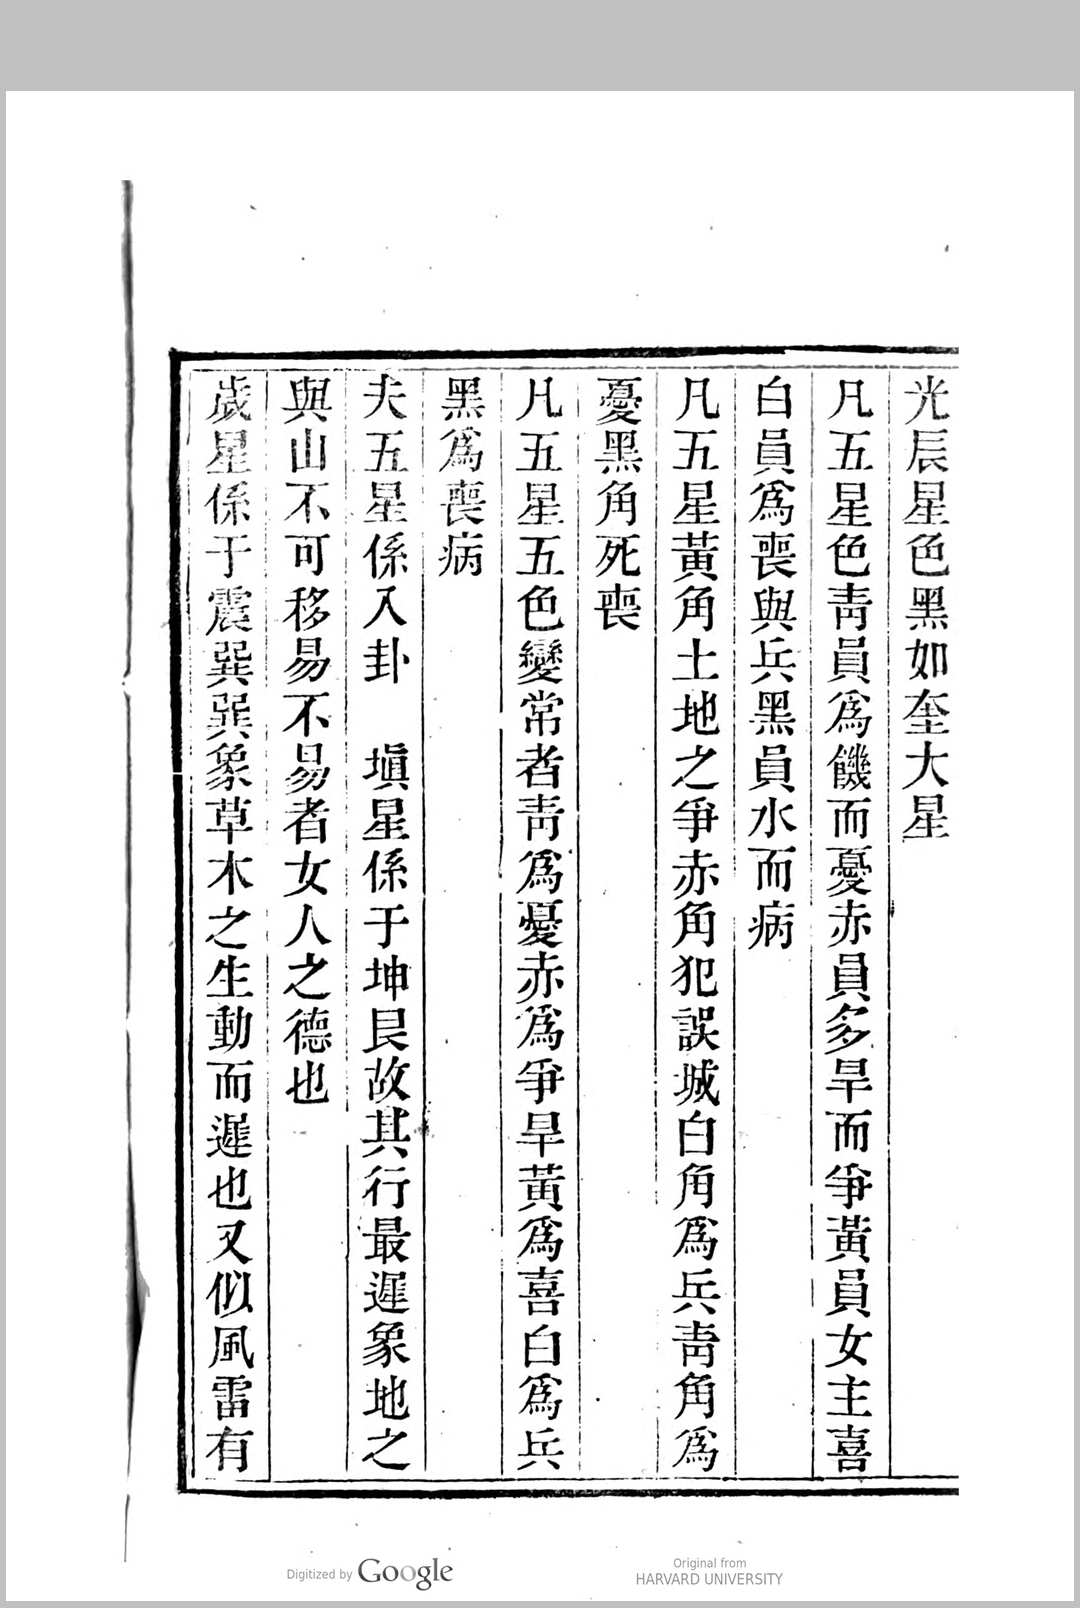 光辰星色黑如奎大星
凡五星色靑員爲饑而憂赤員多旱而爭黃員女主喜
白員爲喪與兵黑員水而病
凡五星黃角土地之爭赤角犯誤城白角爲兵靑角爲
憂黑角死喪
凡五星五色變常者靑爲憂赤爲爭旱黃爲喜白爲兵
黑爲喪病
夫五星係入卦　塡星係于坤艮故其行最遲象地之
與山不可移易不易者女人之德也
歲星係于震巽巽象草木之生動而遲也又似風雷有
Digitized by Google
Original from
HARVARD UNIVERSITY